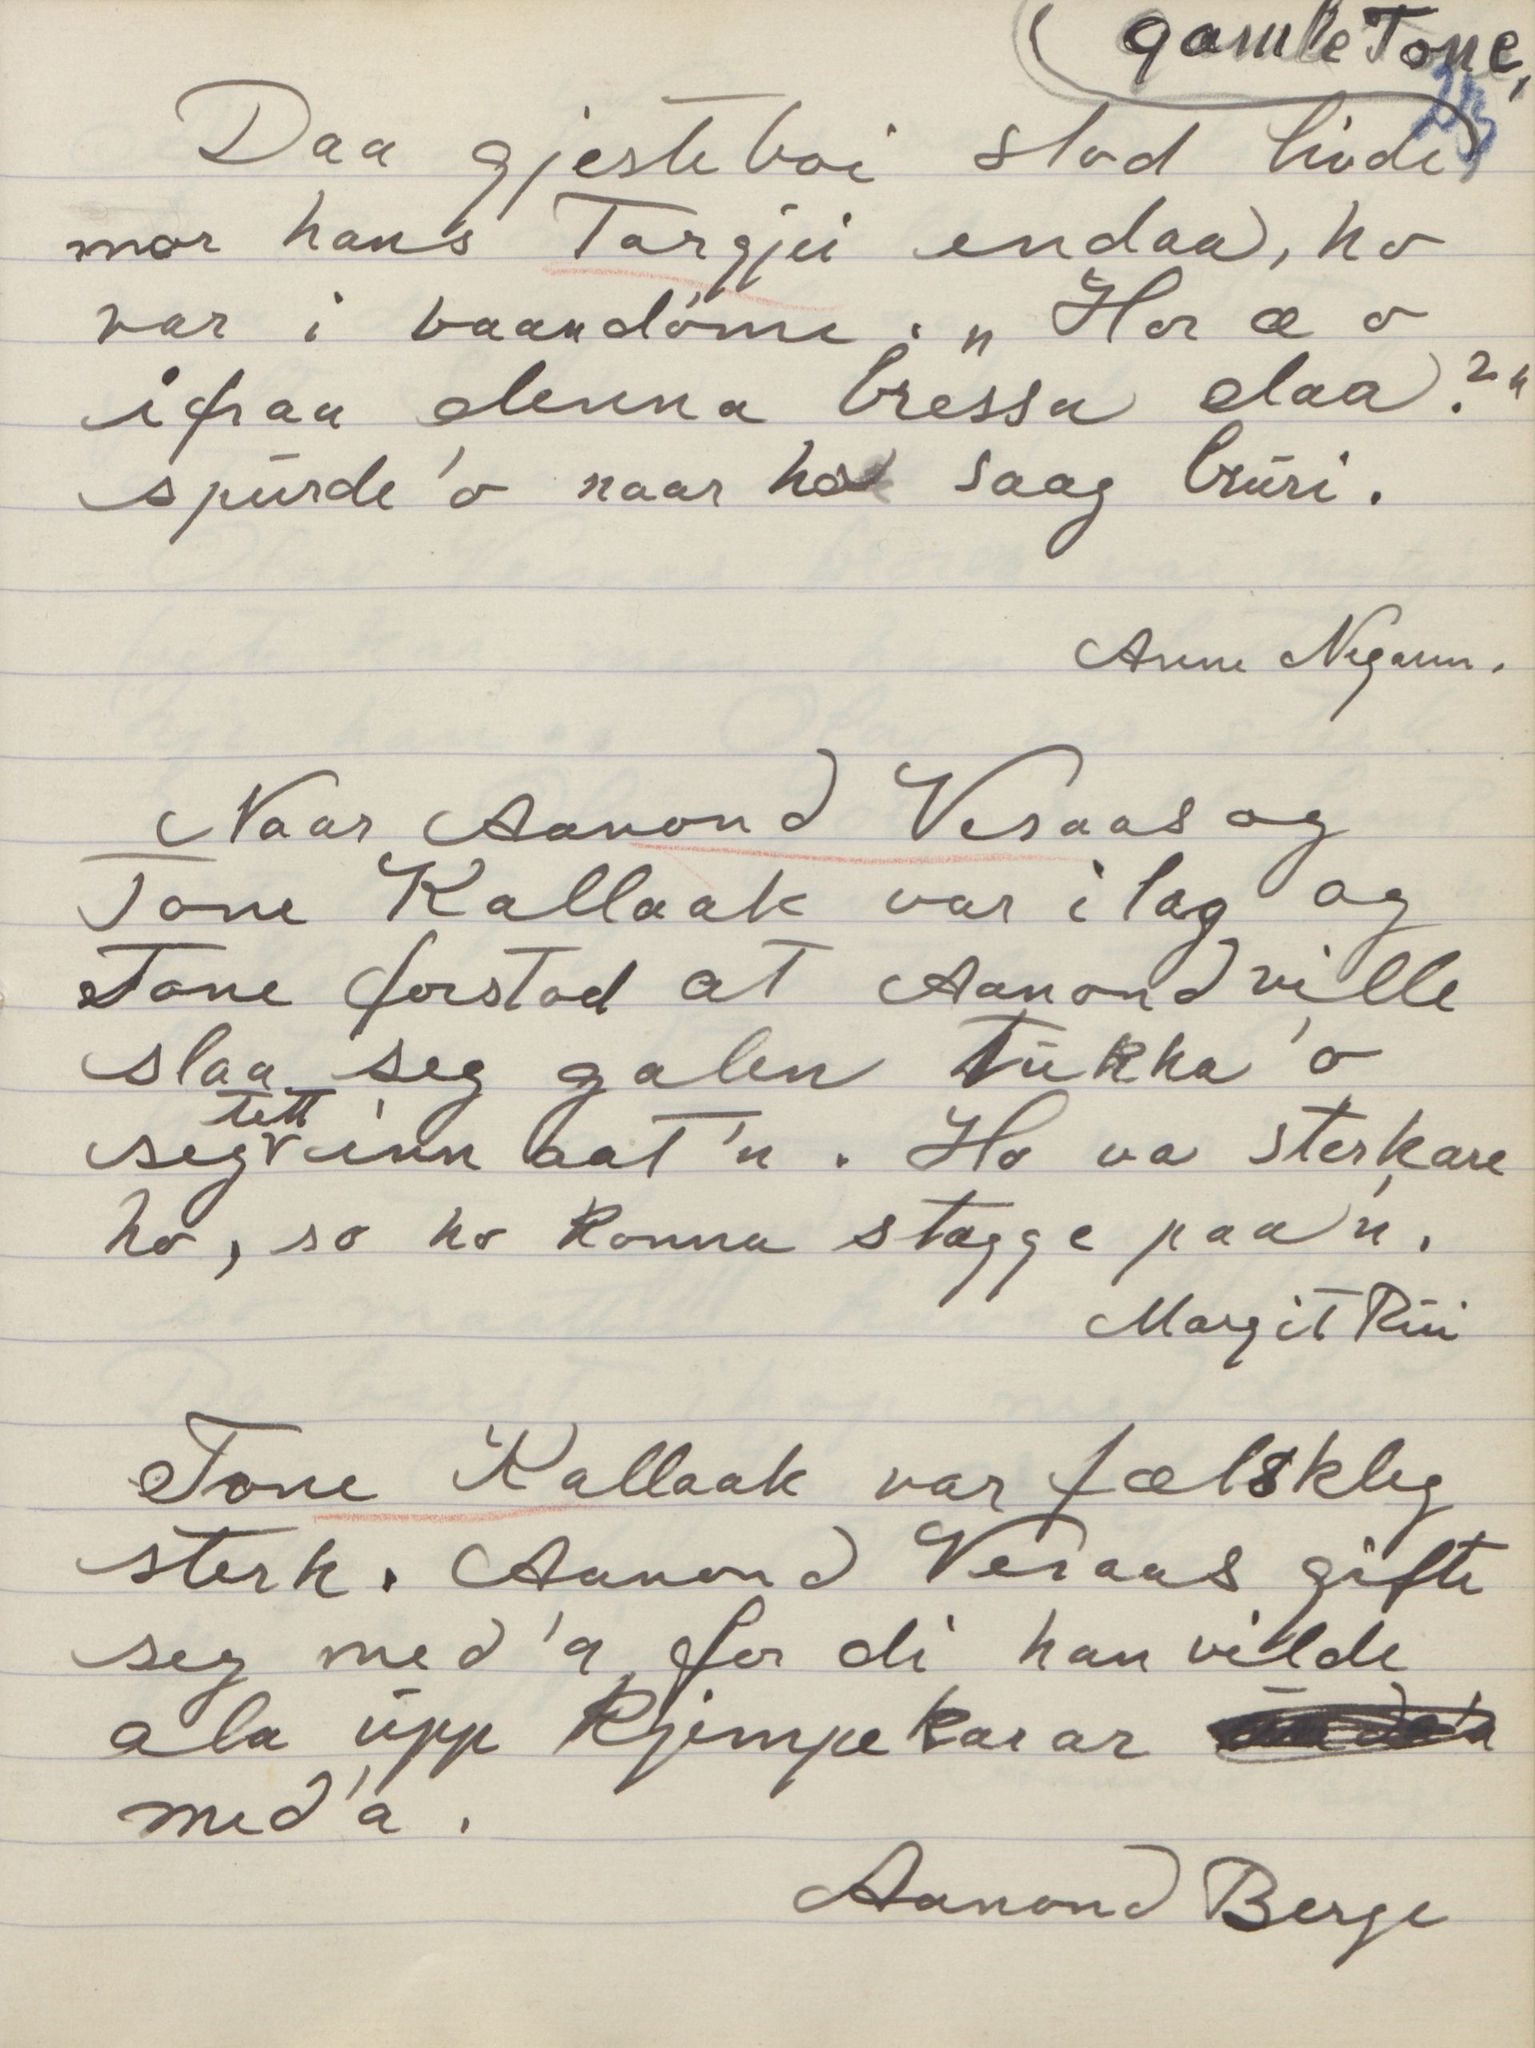 gamle Tone,
Daa gjesteboi stod livde
mor hans Targjei endaa, ho
var i baandóme. „Hor æ o
ifraa denna bressa daa?"
spūrde'o naar ho saag brūri.
Anne Nygaun.
Naar Aanond Vesaas og
Tone Kallaak var i lag og
Tone forstod at Aanond ville
slaa seg galen tūkka'o
seg tett inn aat'n. Ho va sterkare
ho, so ho konna stagge paa'n.
Margit Rūi
Tone Kallaak var fælskleg
sterk. Aanond Vesaas gifte
seg med'a for di han vilde
ala ūpp kjempekarar
med'a.
Aanond Berge